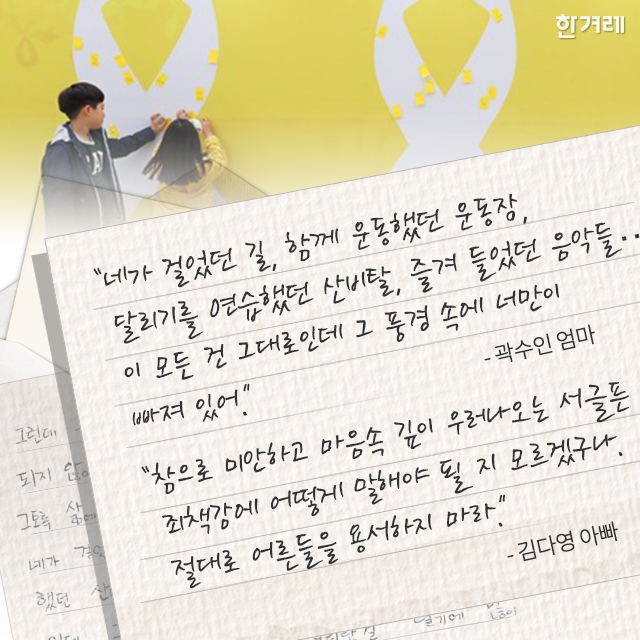 한겨레
"네가 걸었던 길, 함께 운동했던 운동장,
달리기를 연습했던 산비탈, 즐겨 들었던 음악들··
이 모든 건 그대로인데 그 풍경 속에 너만이
빠져 있어."
- 곽수인 엄마
"참으로 미안하고 마음속 깊이 우러나오는 서글픈
죄책감에 어떻게 말해야 될 지 모르겠구나.
절대로 어른들을 용서하지 마라."
- 김다영 아빠
그런데
되지 않
그토록 삶에
네가
했던 산